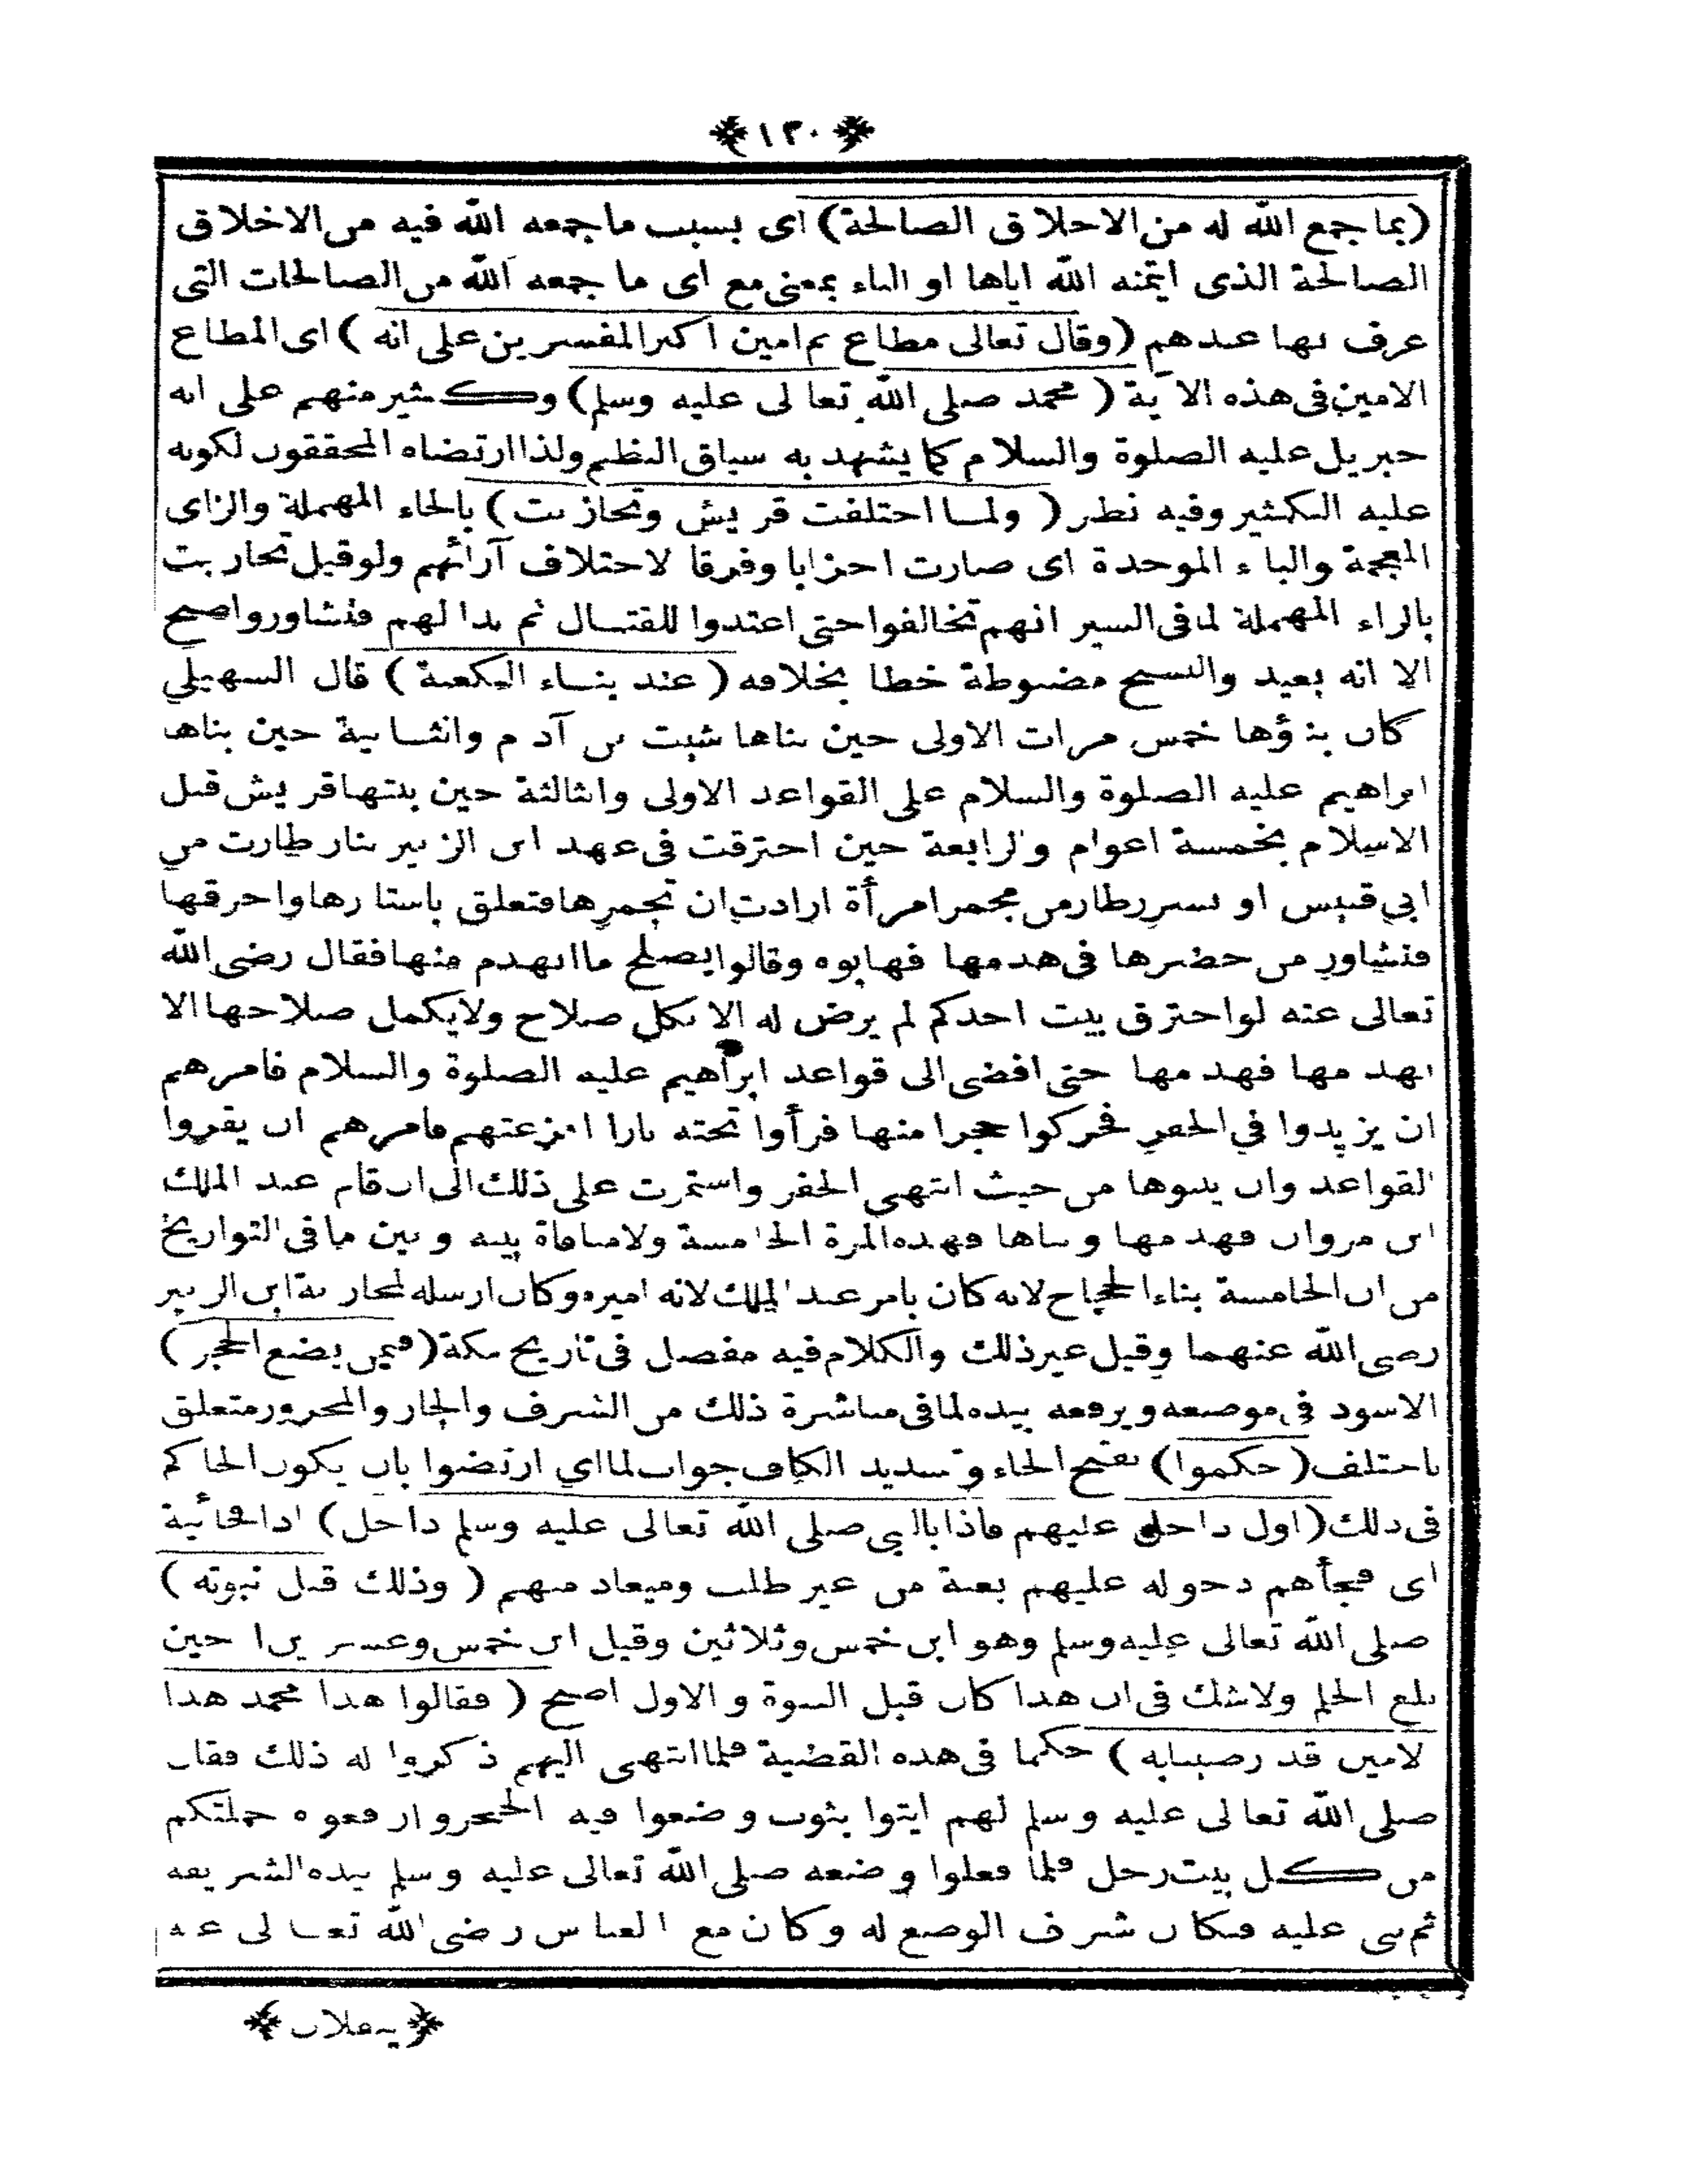 ١٣٠
(بما جمع الله له من الاخلاق الصالحة) اى بسبب ما جمعه الله فيه من الاخلاق
الصالحة الذى ايتمنه الله اياها او الباء بمعنى مع اى ما جمعه الله من الصالحات التى
عرف بها عندهم (وقال تعالى مطاع ثم امين اكثر المفسرين على انه) اى المطاع
الامين فى هذه الآية (محمد صلى الله تعالى عليه وسلم) وكثير منهم على انه
جبريل عليه الصلوة والسلام كما يشهد به سياق النظم ولذا ارتضاه المحققون لكونه
عليه الكثير وفيه نظر (ولما اختلفت قريش وتحازبت) بالحاء المهملة والزاى
المعجمة والباء الموحدة اى صارت احزابا وفرقا لاختلاف آرائهم ولو قيل تحاربت
بالراء المهملة لما فى السير انهم تخالفوا حتى اعتدوا للقتال ثم بدا لهم فتشاوروا صح
الا انه بعيد والنسخ مضبوطة خطا بخلافه (عند بناء الكعبة) قال السهيلي
كان بنؤها خمس مرات الاولى حين بناها شيث بن آدم والثانية حين بناها
ابراهيم عليه الصلوة والسلام على القواعد الاولى والثالثة حين بنتها قريش قبل
الاسلام بخمسة اعوام والرابعة حين احترقت فى عهد ابن الزبير بنار طارت من
ابي قبيس او بشرر طار من مجمر امرأة ارادت ان تجمرها فتعلق باستارها واحرقها
فتشاور من حضرها فى هدمها فهابوه وقالوا يصلح ما انهدم منها فقال رضى الله
تعالى عنه لو احترق بيت احدكم لم يرض له الا بكل صلاح ولا يكمل صلاحها الا
بهدمها فهدمها حتى افضى الى قواعد ابراهيم عليه الصلوة والسلام فامرهم
ان يزيدوا في الحفر فحركوا حجرا منها فرأوا تحته نارا افزعتهم فامرهم ان يقروا
القواعد وان يبنوها من حيث انتهى الحفر واستمرت على ذلك الى ان قام عبد الملك
ابن مروان فهدمها وبناها فهذه المرة الخامسة ولا منافاة بينه وبين ما فى التواريخ
من ان الخامسة بناء الحجاج لانه كان بامر عبد الملك لانه اميره وكان ارسله لمحاربة ابن الزبير
رضى الله عنهما وقيل غير ذلك والكلام فيه مفصل فى تاريخ مكة (فيمن يضع الحجر)
الاسود فى موضعه ويرفعه بيده لما فى مباشرة ذلك من الشرف والجار والمجرور متعلق
باختلف (حكموا) بفتح الحاء وتشديد الكاف جواب لما اي ارتضوا بان يكون الحاكم
فى ذلك (اول داخل عليهم فاذا بالنبى صلى الله تعالى عليه وسلم داخل) اذا فجائية
اى فجأهم دخوله عليهم بغتة من غير طلب وميعاد منهم (وذلك قبل نبوته)
صلى الله تعالى عليه وسلم وهو ابن خمس وثلاثين وقيل ابن خمس وعشرين ا حين
بلغ الحلم ولا شك فى ان هذا كان قبل النبوة والاول اصح (فقالوا هذا محمد هذا
لامين قد رضينا به) حكما فى هذه القضية فلما انتهى اليهم ذكروا له ذلك فقال
صلى الله تعالى عليه وسلم لهم ايتوا بثوب وضعوا فيه الحجر وارفعوه جملتكم
من كل بيت رجل فلما فعلوا وضعه صلى الله تعالى عليه وسلم بيده الشريفة
ثم بنى عليه فكان شرف الوضع له وكان مع العباس رضى الله تعالى عنه